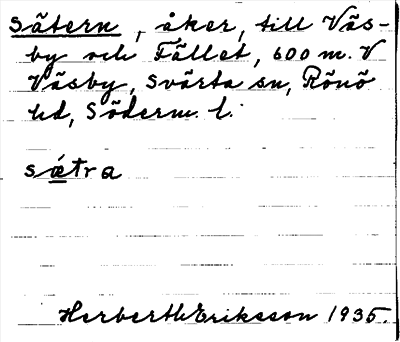 Sätern, åker, till Väs-
by och Fället, 600 m. V
Väsby, Svärta sn, Rönö
hd, Söderm. l.
sǽtra
Herbert Eriksson 1935.